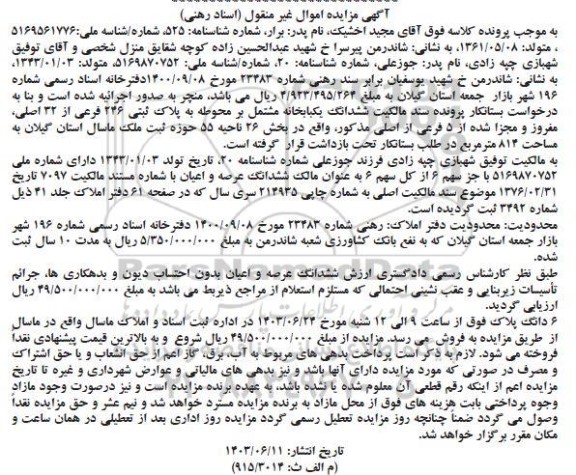 آگهی مزایده اموال غیر منقول (اسناد رهنی)
به موجب پرونده کلاسه فوق آقای مجید اخشیک، نام پدر: برار، شماره شناسنامه: ۵۲۵، شماره/شناسه ملی: ۵۱۶۹۵۶۱۷۷۶
، متولد: ۱۳۶۱/۰۵/۰۸، به نشانی: شاندرمن پیرسرا خ شهید عبدالحسین زاده کوچه شقایق منزل شخصی و آقای توفیق
شهبازی چپه زادی، نام پدر: جوزعلی، شماره شناسنامه: ۲۰، شماره/شناسه ملی: ۵۱۶۹۸۷۰۷۵۲، متولد: ۱۳۴۳/۰۱/۰۳،
به نشانی: شاندرمن خ شهید یوسفیان برابر سند رهنی شماره ۲۳۴۸۳ مورخ ۱۴۰۰/۰۹/۰۸دفترخانه اسناد رسمی شماره
۱۹۶ شهر بازار جمعه استان گیلان به مبلغ ۴/۹۳۳/۴۹۵/۲۶۴ ریال می باشد، منجر به صدور اجرائیه شده است و بنا به
درخواست بستانکار پرونده ثبتی مالکیت ششدانگ یکبابخانه مشتمل بر محوطه به پلاک ثبتی ۲۴۶ فرعی از ۳۲ اصلی،
مفروز و مجزا شده از ۵ فرعی از اصلی مذکور، واقع در بخش ۲۶ ناحیه ۵۵ حوزه ثبت ملک ماسال استان گیلان به
مساحت ۸۱۴ مترمربع در طلب بستانکار تحت بازداشت قرار گرفته است.
به مالکیت توفیق شهبازی چپه زادی فرزند جوزعلی شماره شناسنامه ۲۰، تاریخ تولد ۱۳۴۳/۰۱/۰۳ دارای شماره ملی
۵۱۶۹۸۷۰۷۵۲ با جز سهم ۶ از کل سهم ۶ به عنوان مالک ششدانگ عرصه و اعیان با شماره مستند مالکیت ۷۰۹۷ تاریخ
۱۳۷۶/۰۲/۳۱ موضوع سند مالکیت اصلی به شماره چاپی ۲۱۴۹۳۵ سری سال که در صفحه ۶۱ دفتر املاک جلد ۴۱ ذیل
شماره ۳۴۹۲ ثبت گردیده است.
محدودیت: محدودیت دفتر املاک: رهنی شماره ۲۳۴۸۳ مورخ ۱۴۰۰/۰۹/۰۸ دفترخانه اسناد رسمی شماره ۱۹۶ شهر
بازار جمعه استان گیلان که به نفع بانک کشاورزی شعبه شاندرمن به مبلغ ۵/۳۵۰/۰۰۰/۰۰۰ ریال به مدت ۱۰ سال ثبت
شده.
طبق نظر کارشناس رسمی دادگستری ارزش ششدانگ عرصه و اعیان بدون احتساب دیون و بدهکاری ها، جرائم
تأسیسات زیربنایی و عقب نشینی احتمالی که مستلزم استعلام از مراجع ذیربط می باشد به مبلغ ۴۹/۵۰۰/۰۰۰/۰۰۰ ریال
ارزیابی گردید.
۶ دانگ پلاک فوق از ساعت ۹ الی ۱۲ شنبه مورخ ۱۴۰۳/۰۶/۲۴ در اداره ثبت اسناد و املاک ماسال واقع در ماسال
از طریق مزایده به فروش می رسد. مزایده از مبلغ ۴۹/۵۰۰/۰۰۰/۰۰۰ ریال شروع و به بالاترین قیمت پیشنهادی نقدا
فروخته می شود. لازم به ذکر است پرداخت بدهی های مربوط به آب، برق، گاز اعم از حق انشعاب و یا حق اشتراک
و مصرف در صورتی که مورد مزایده دارای آنها باشد و نیز بدهی های مالیاتی و عوارض شهرداری و غیره تا تاریخ
مزایده اعم از اینکه رقم قطعی آن معلوم شده یا نشده باشد، به عهده برنده مزایده است و نیز درصورت وجود مازاد
وجوه پرداختی بابت هزینه های فوق از محل مازاد به برنده مزایده مسترد خواهد شد و نیم عشر و حق مزایده نقدا
وصول می گردد ضمناً چنانچه روز مزایده تعطیل رسمی گردد مزایده روز اداری بعد از تعطیلی در همان ساعت و
مکان مقرر برگزار خواهد شد.
تاریخ انتشار: ۱۴۰۳/۰۶/۱۱
(م الف ث: ۹۱۵/۳۰۱۴)